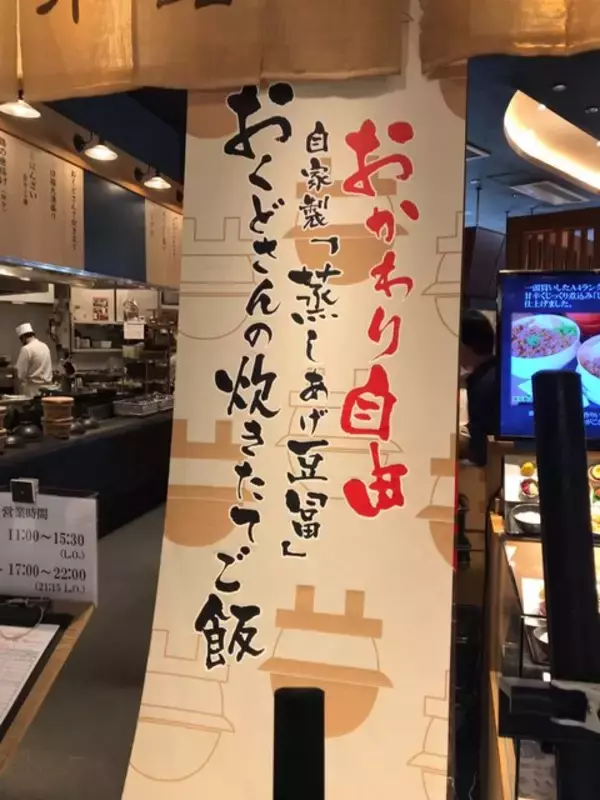 おかわり自由
自家製「蒸しあげ豆冨」
おくどさんの炊きたてご飯
営業時間
11:00～15:30
(L.O.)
17:00～22:00
(21:15 L.O.)
一頭買いしたA4ランク
甘辛くじっくり煮込み「
仕上げました。